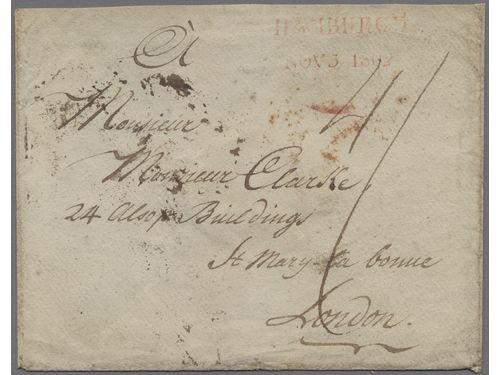 HAMBURGH
NOV 3 1802
A
4/
Monsieur
Monsieur Clarke
24 Alsop Buildings
St Mary-la bonne
London.